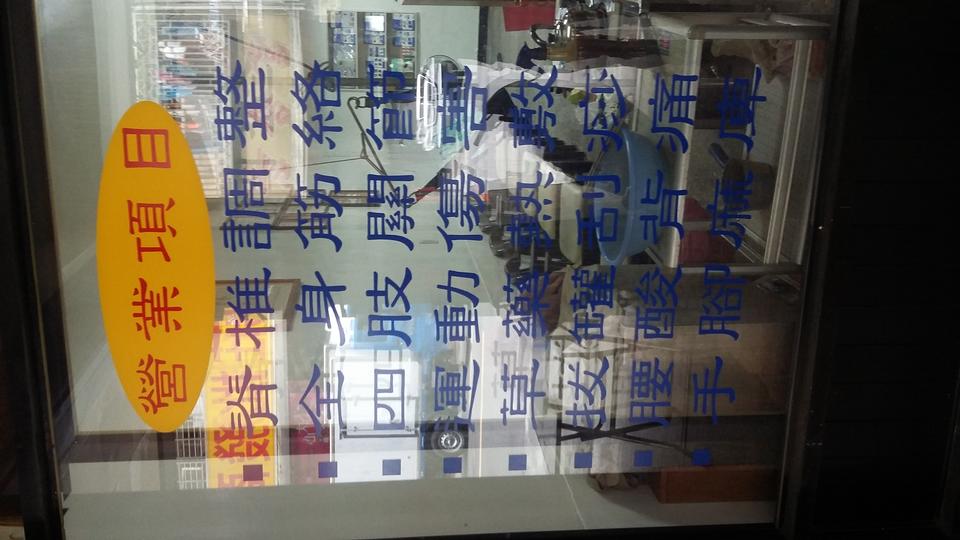 營業項目
脊椎調整
全身筋絡
四肢關節
運動傷害
草藥熱敷
拔罐刮痧
腰酸背痛
手腳麻痺